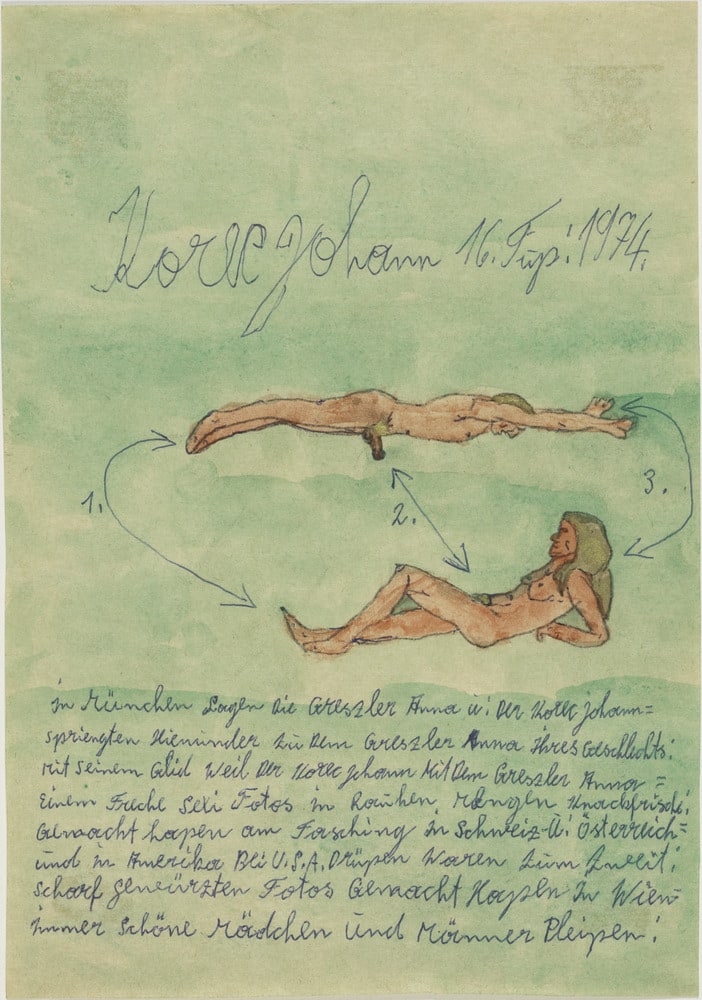 Korec Johann 16. Fup! 1974.
1.
2.
3.
in München Lagen die Greszler Anna u! Der Korec Johann=
spriengten Hienunder zu Dem Greszler Anna ihres Geschlechts!
Mit seinem Glid Weil Der Korec Johann Mit Dem Greszler Anna =
Einem Freche Sexi Fotos in Rauhen Mengen Knackfrische!
Gemacht hapen am Fasching in Schweiz-Ü! Österrlich=
und in Amerika Bei U.S.A. Drüpen Waren Zum Zweit!
Scharf Gewürzten Fotos Gemacht Hapen In Wien=
immer Schöne Mädchen und Männer Pleipen!